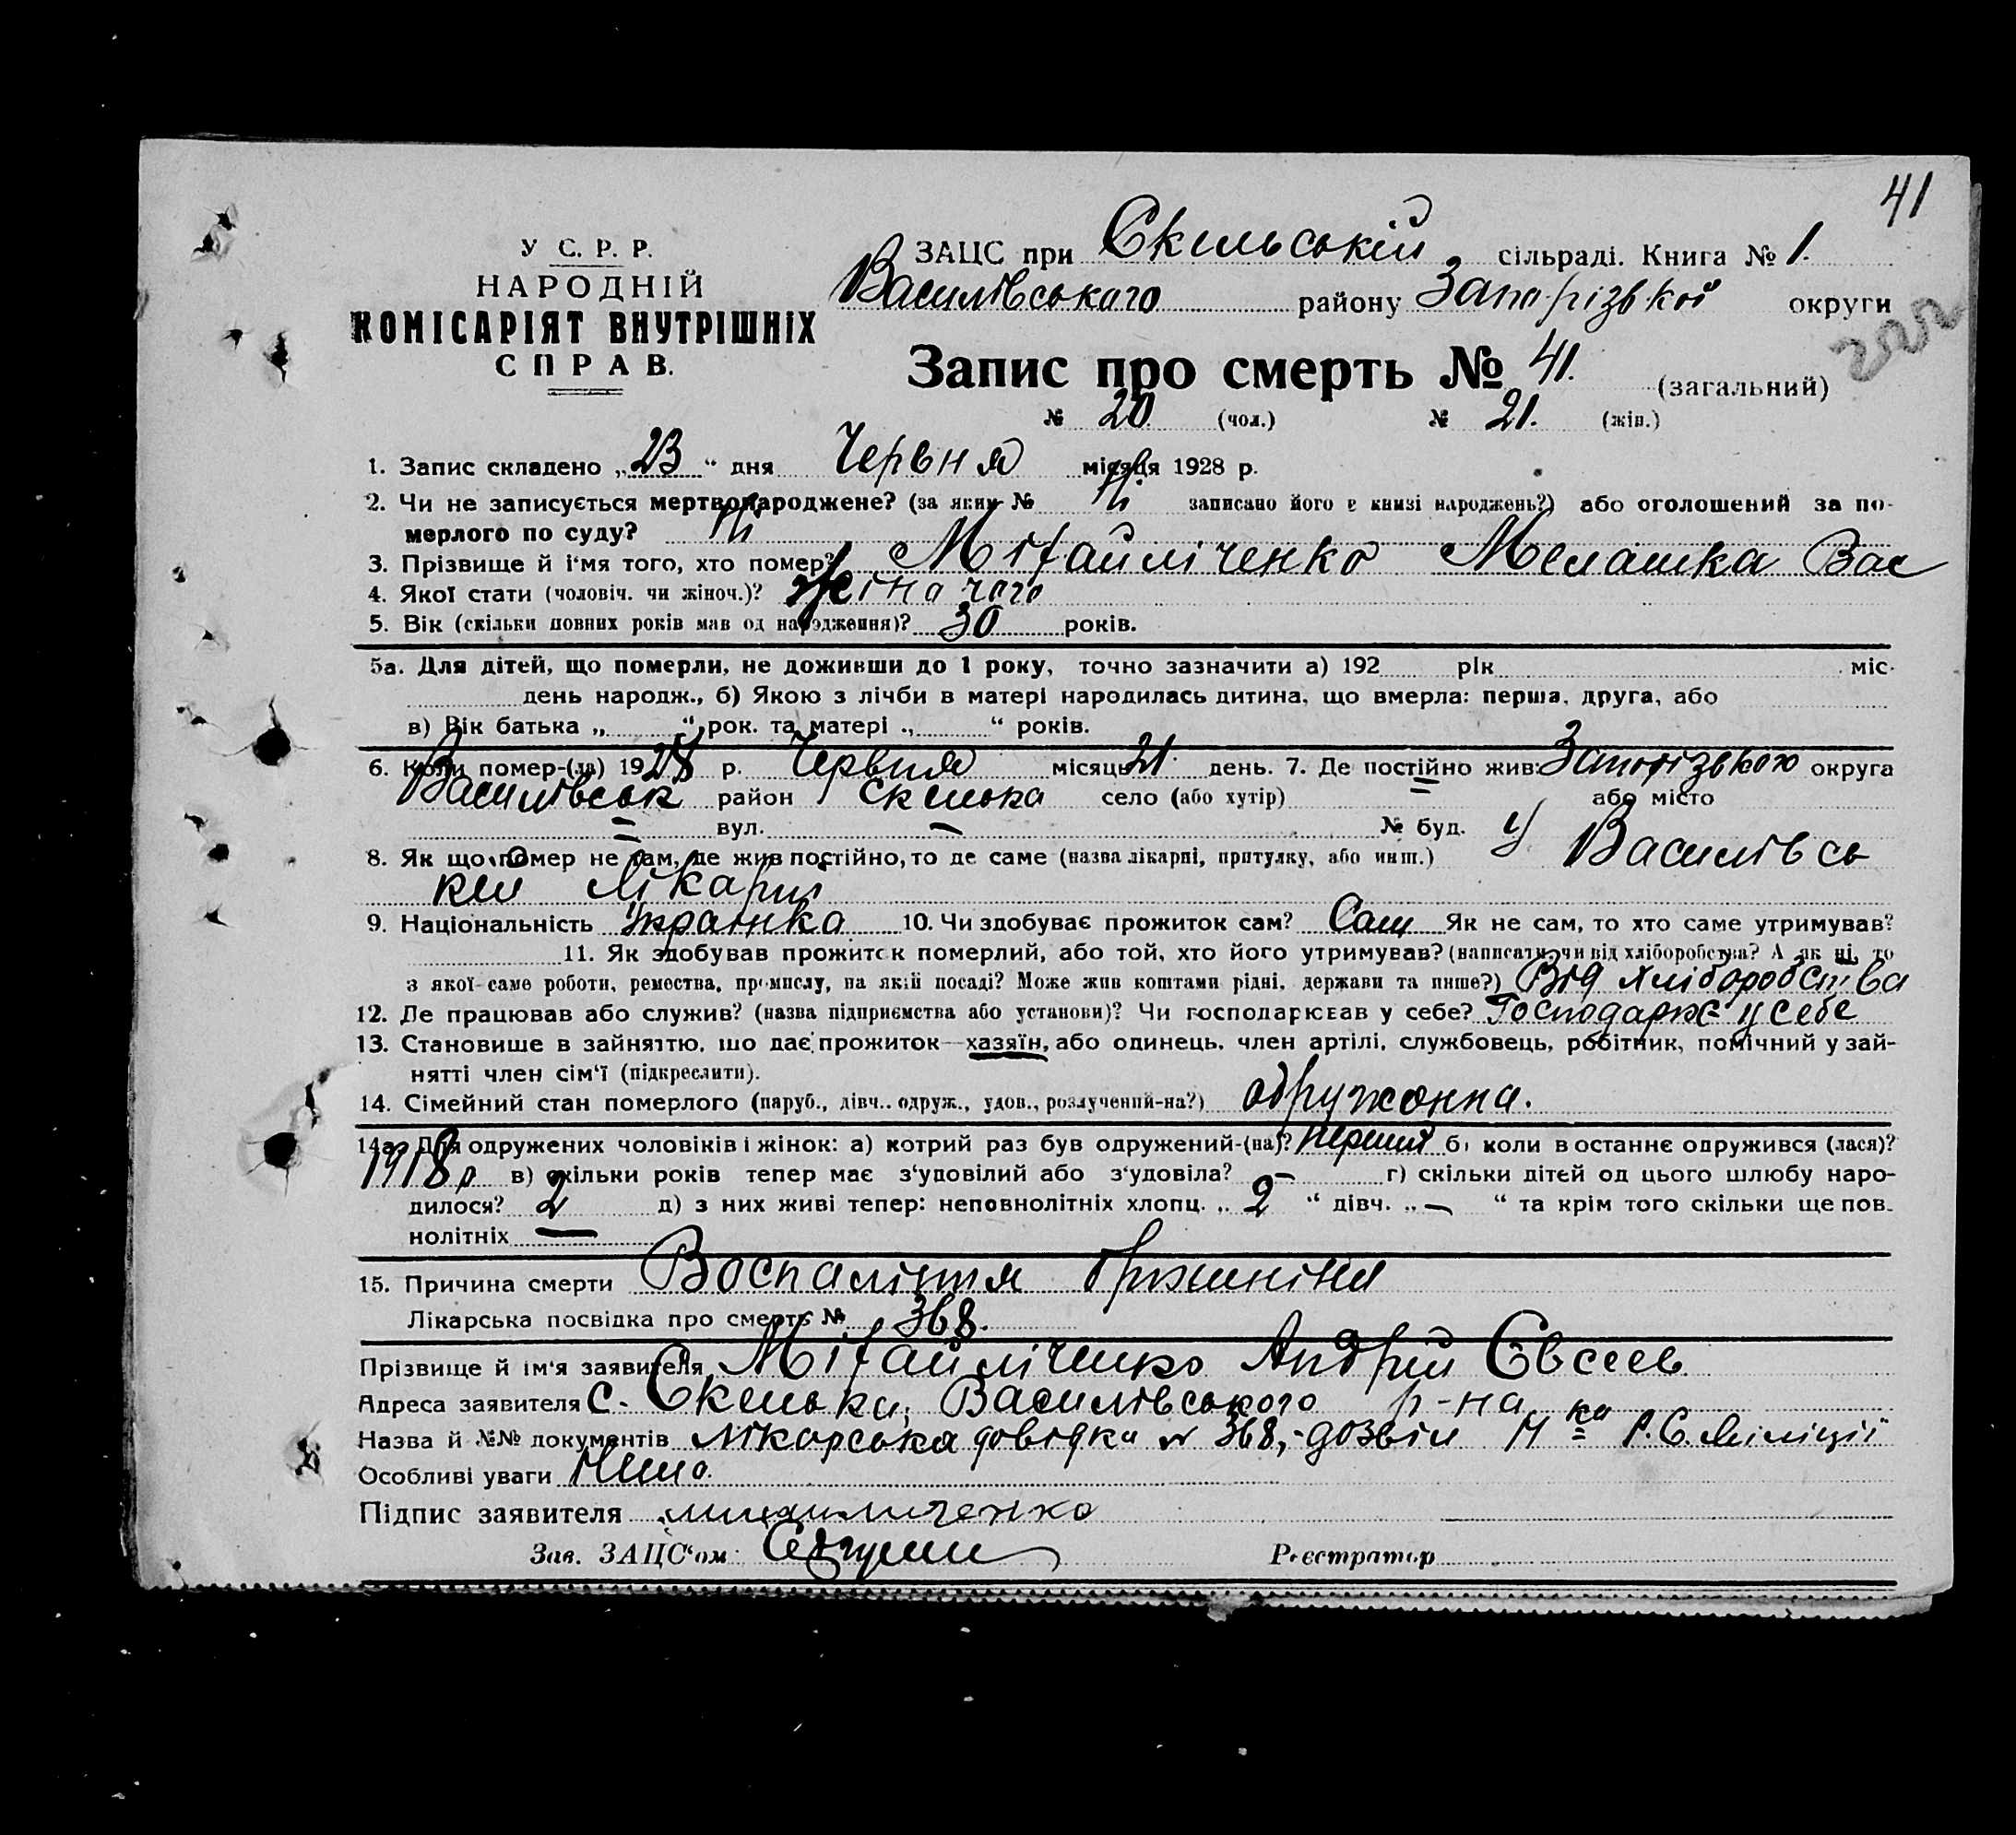 41
У С. Р. Р.
НАРОДНІЙ
КОМІСАРІЯТ ВНУТРІШНІХ
СПРАВ.
ЗАЦС при Скельській сільраді. Книга № 1.
Василівського району Запорізької округи
Запис про смерть № 41. (загальний)
№ 20 (чол.) № 21. (жін.)
1. Запис складено „23“ дня Червня місяця 1928 р.
2. Чи не записується мертвонароджене? (за яким № Ні записано його в книзі народжень?) або оголошений за по-
мерлого по суду? Ні
3. Прізвище й і‘мя того, хто помер? Міхайліченко Мелашка Вас
4. Якої стати (чоловіч. чи жіноч.)? жіночого
5. Вік (скільки повних років мав од народження)? 30 років.
5а. Для дітей, що померли, не доживши до 1 року, точно зазначити а) 192 рік міс.
день народж., б) Якою з лічби в матері народилась дитина, що вмерла: перша, друга, або
в) Вік батька „ “ рок. та матері „ “ років.
6. Коли помер-(ла) 1928 р. Червня місяць 21 день. 7. Де постійно жив: Запорізького округа
Василівськ район Скелька село (або хутір) = або місто
= вул. — № буд.
8. Як що помер не там, де жив постійно, то де саме (назва лікарні, притулку, або инш.) У Василівсь
кій лікарні
9. Національність Українка 10. Чи здобуває прожиток сам? Сам Як не сам, то хто саме утримував?
11. Як здобував прожиток померлий, або той, хто його утримував? (написати, чи від хліборобства? А як ні, то
з якої саме роботи, ремества, промислу, на якій посаді? Може жив коштами рідні, держави та инше?) Від хліборобства
12. Де працював або служив? (назва підприємства або установи)? Чи господарював у себе? Господарює у себе
13. Становище в зайняттю, що дає прожиток—хазяїн, або одинець, член артілі, службовець, робітник, помічний у зай-
нятті член сім‘ї (підкреслити).
14. Сімейний стан померлого (паруб., дівч., одруж., удов., розлучений-на?) одружонна.
14а. Для одружених чоловіків і жінок: а) котрий раз був одружений-(на)? перший б) коли в останнє одружився (лася)?
1918 р в) скільки років тепер має з‘удовілий або з‘удовіла? — г) скільки дітей од цього шлюбу наро-
дилося? 2 д) з них живі тепер: неповнолітніх хлопц. „ 2 “ дівч. „ — “ та крім того скільки ще пов-
нолітніх —
15. Причина смерти Воспаління брюшніни
Лікарська посвідка про смерть № 368.
Прізвище й ім‘я заявителя Міхайліченко Андрій Євсеев
Адреса заявителя с. Скелька, Василівського р-на
Назва й №№ документів лікарська довідка № 368, - дозвіл Н ка Р.С. Міліції
Особливі уваги Нима.
Підпис заявителя михайличенко
Зав. ЗАЦС‘ом Реєстратор